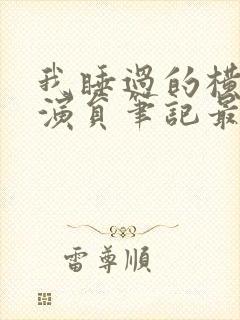 我睡過的橫
演員筆記最
雷尊順